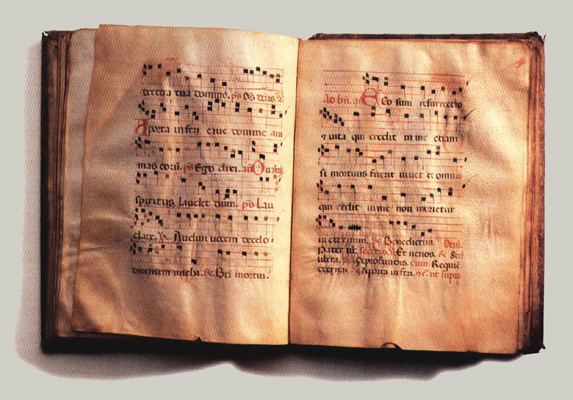 dextera tua domine. ps Ds deus
A porta inferi erue domine ani
mas eoru. ps Ego dixi. an Omnis
spiritus laudet dnm. ps Lau
date. Audivi vocem de celo
dicentem michi. Bti mortui.
Ad bn. an EGo sum resurrectio
& vita qui credit in me etiam
si mortuus fuerit vivet et omnis
qui credit in me non morietur
in eternum. ps Benedictus.
Pater nr. Et ne nos. Sed
libera. ps De profundis. cum Requie
A porta inferi. &c. ut supra